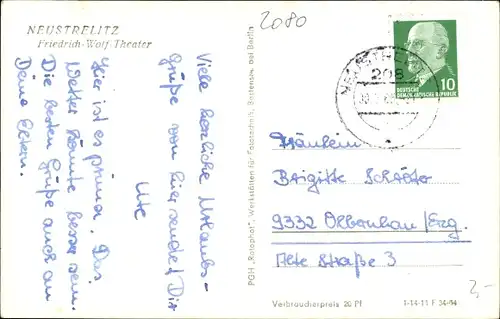 NEUSTRELITZ
Friedrich-Wolf-Theater
2080
Viele herzliche Urlaubs-
grüße von hier sendet Dir
Ute
Hier ist es prima. Das
Wetter könnte besser sein.
Die besten Grüße auch an
Deine Eltern.
PGH „Rotophot", Werkstätten für Fototechnik, Bestensee bei Berlin
NEUSTREL
208
DEUTSCHE
DEMOKRATISCHE REPUBLIK
10
Fräulein
Brigitte Schröter
9332 Olbernhau/Erzg.
Alte Straße 3
Verbraucherpreis 20 Pf
1-14-11 F 34/64
2,-